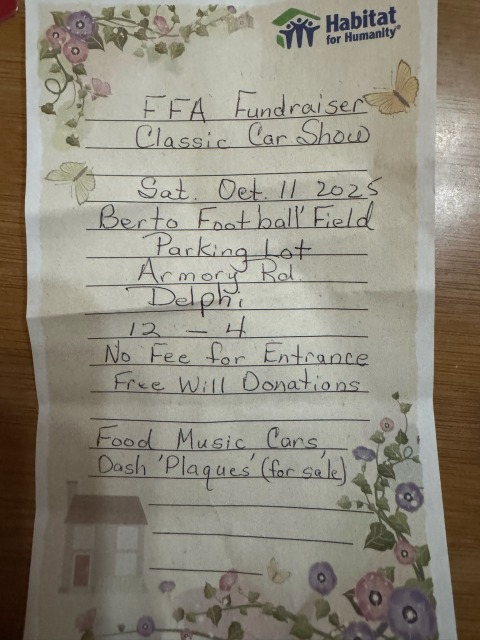 Habitat
for Humanity®
FFA Fundraiser
Classic Car Show
Sat. Oct. 11 2025
Berto Football Field
Parking Lot
Armory Rd
Delphi
12 - 4
No Fee for Entrance
Free Will Donations
Food Music Cars
Dash 'Plaques' (for sale)